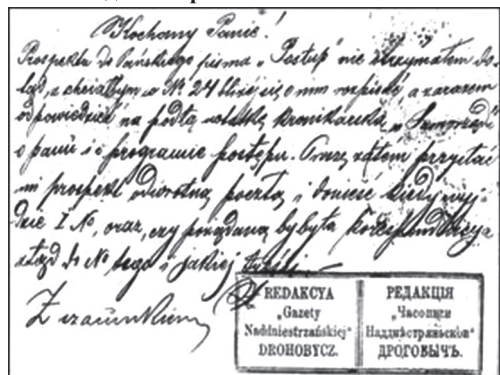 Kochany Panie!
Prospektu do Pańskiego pisma „Postęp" nie otrzymałem do-
tąd, a chciałbym w № 24 bliżej się o nim rozpisać, a zarazem
odpowiedzieć na podłą notatkę kronikarską
o panu i o programie postępu. Proszę zatem przysłać
mi prospekt odwrotną pocztą i donieść kiedy wyj-
dzie I №, oraz, czy pożądaną byłaby korespondencya
stąd do № tego i jakiej treści
Z szacunkiem
REDAKCYA
„Gazety
Naddniestrzańskiej"
DROHOBYCZ.
РЕДАКЦІЯ
„Часописи
Наддністрянськои"
ДРОГОБЫЧЪ.